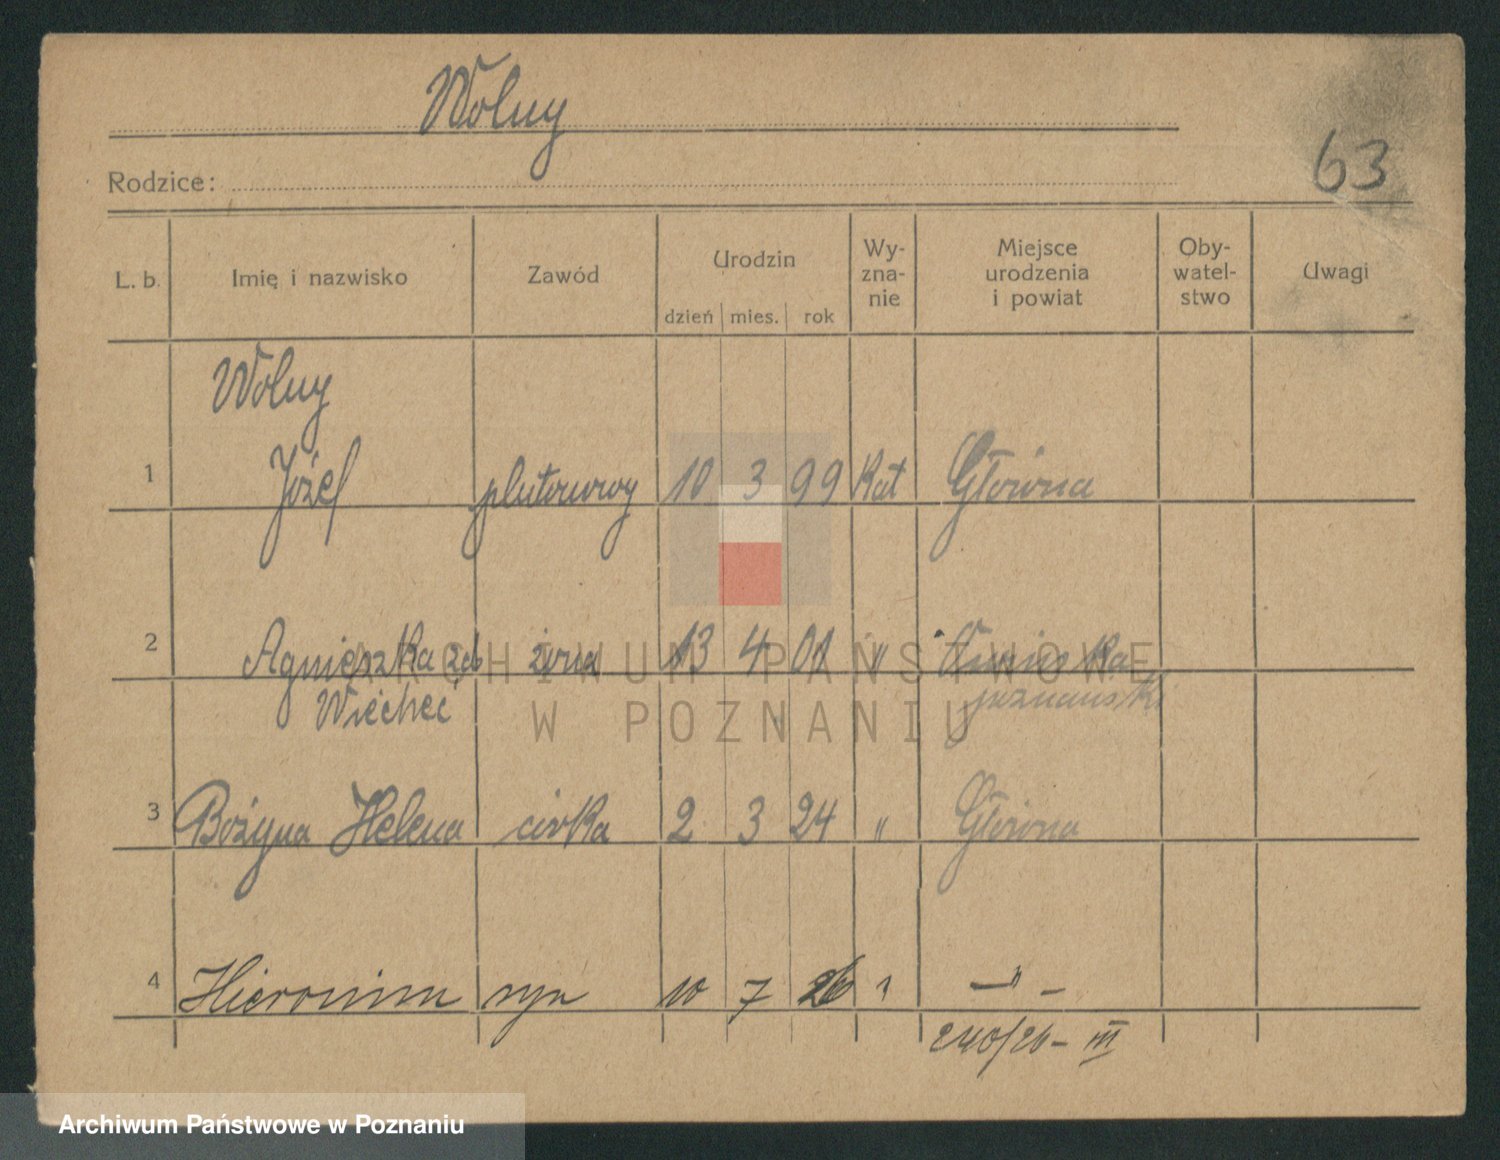 Wolny
63
Rodzice:
L. b. Imię i nazwisko Zawód Urodzin dzień mies. rok Wy-zna-nie Miejsce urodzenia i powiat Oby-watel-stwo Uwagi
Wolny
1 Józef plutonowy 10 3 99 Kat Główna
2 Agnieszka zd żona 13 4 01 "
Wiecheć poznański
3 Bożyna Helena córka 2 3 24 " Główna
4 Hieronim syn 10 7 26 " - " -
240/26 - III
ARCHIWUM PAŃSTWOWE
W POZNANIU
Archiwum Państwowe w Poznaniu